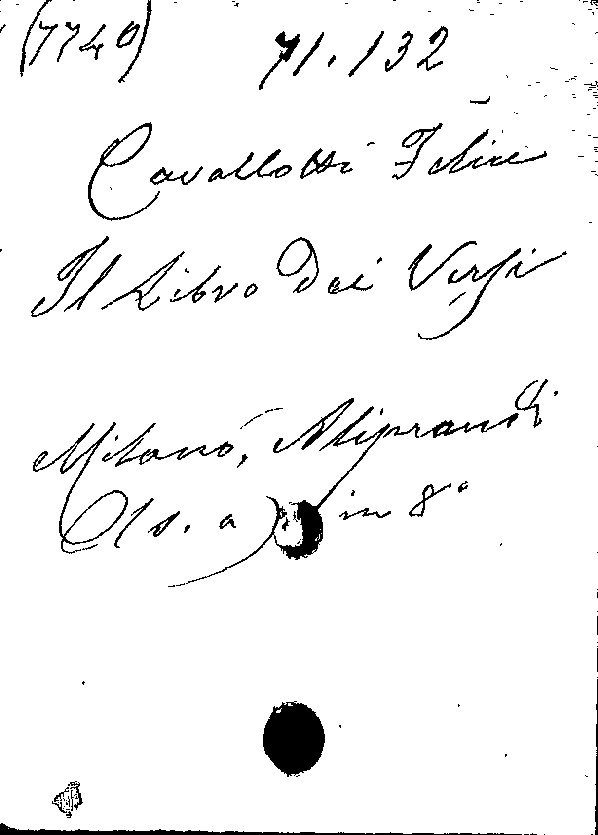 (7740) 71.132
Cavallotti Felice
Il Libro Dei Versi
Milano, Aliprandi
(s. a) in 8°